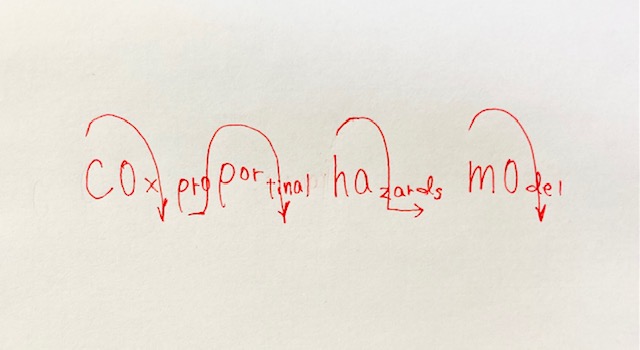 COx proportinal hazards mOdel